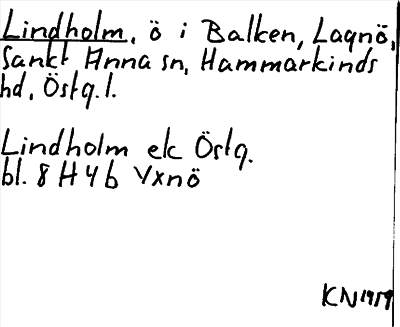 Lindholm, ö i Balken, Lagnö,
Sankt Anna sn, Hammarkinds
hd, Östg.l.
Lindholm ek Östg.
bl. 8 H 4 b Yxnö
KN 1959